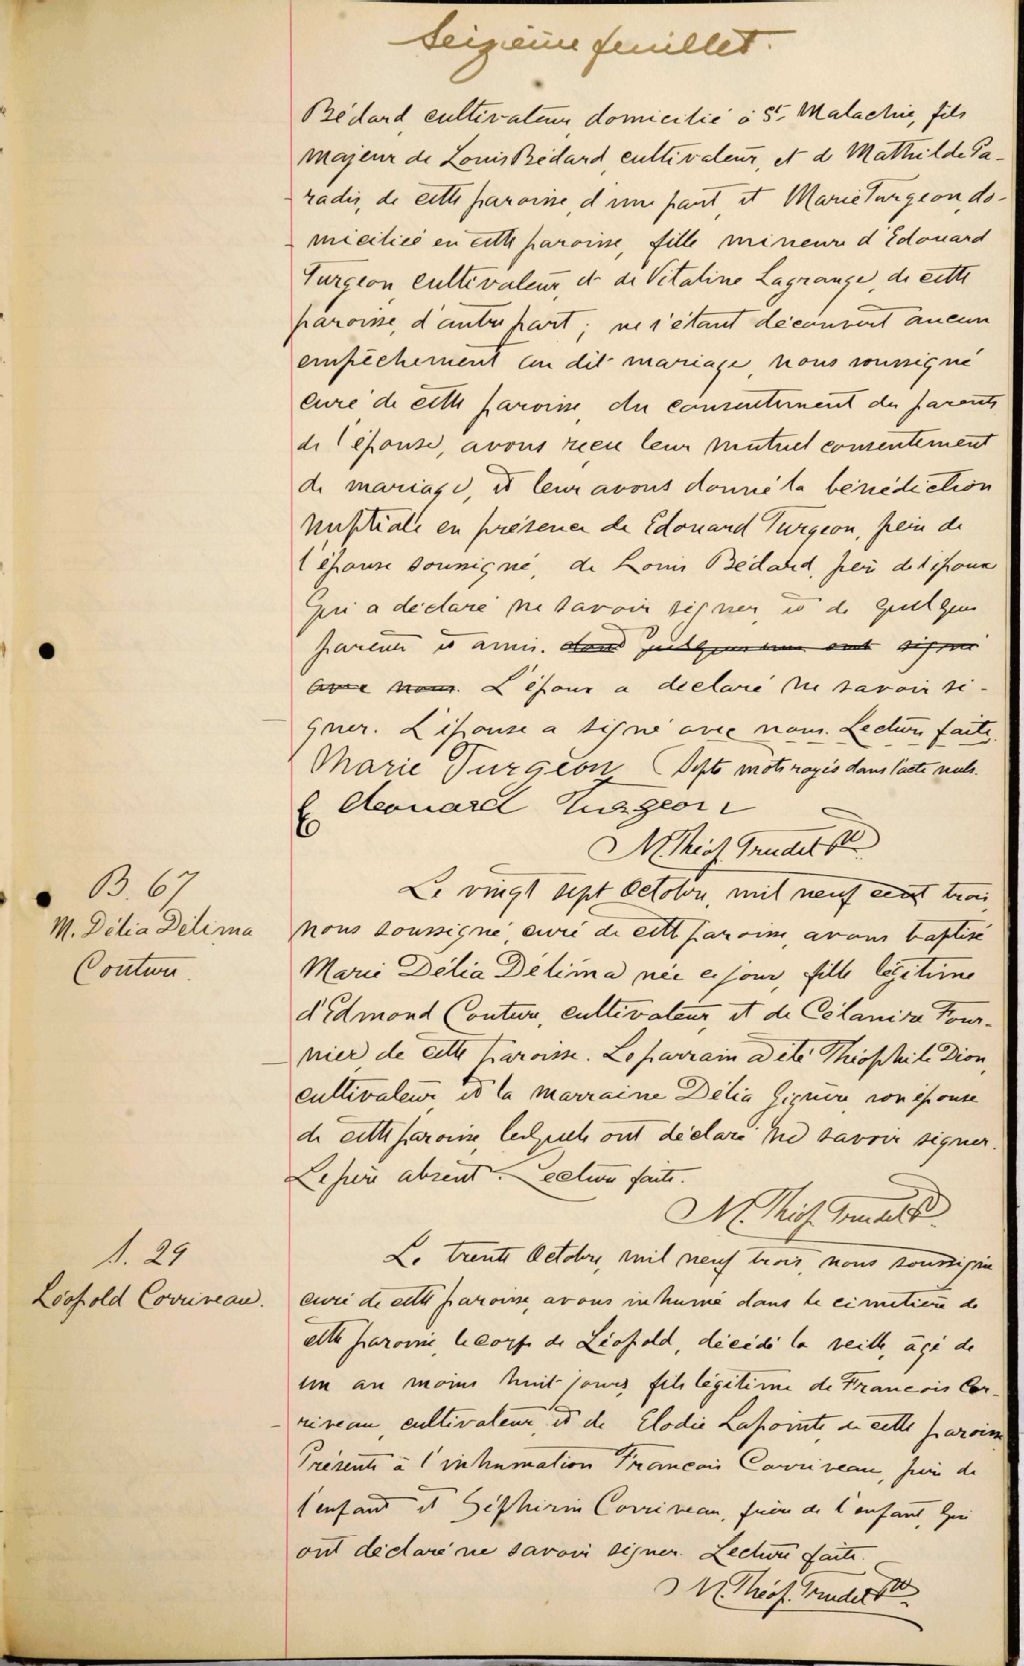 Seizième feuillet.
Bédard, cultivateur domicilié à St. Malachie, fils
majeur de Louis Bédard, cultivateur, et de Mathilde Pa-
radis, de cette paroisse, d'une part, et Marie Turgeon, do-
miciliée en cette paroisse, fille mineure d'Edouard
Turgeon, cultivateur, et de Vitaline Lagrange, de cette
paroisse, d'autre part; ne s'étant découvert aucun
empêchement au dit mariage, nous soussigné
curé de cette paroisse, du consentement des parents
de l'épouse, avons reçu leur mutuel consentement
de mariage, et leur avons donné la bénédiction
nuptiale en présence de Edouard Turgeon, père de
l'épouse soussigné, de Louis Bédard, père de l'époux
qui a déclaré ne savoir signer, et de quelques
parents et amis. dont quelques uns ont signé
avec nous. L'époux a déclaré ne savoir si-
gner. L'épouse a signé avec nous. Lecture faite.
Marie Turgeon (Septs mots rayés dans l'acte nuls.
Edouard Turgeon
M. Théof. Trudel Ptre
B. 67
M. Délia Délima
Couture
Le vingt sept Octobre, mil neuf cent trois,
nous soussigné, curé de cette paroisse, avons baptisé
Marie Délia Délima née ce jour, fille légitime
d'Edmond Couture, cultivateur, et de Célanire Four-
nier, de cette paroisse. Le parrain a été Théophile Dion,
cultivateur, et la marraine Délia Giguère, son épouse
de cette paroisse, lesquels ont déclaré ne savoir signer.
Le père absent. Lecture faite.
M. Théof. Trudel Ptre
S. 29
Léopold Corriveau.
Le trente Octobre, mil neuf trois, nous soussigné
curé de cette paroisse, avons inhumé dans le cimetière de
cette paroisse, le corps de Léopold, décédé la veille, âgé de
un an moins huit jours, fils légitime de Francois Cor-
riveau, cultivateur, et de Elodie Lapointe, de cette paroisse
Présents à l'inhumation Francois Corriveau, père de
l'enfant et Séphirin Corriveau, frère de l'enfant, qui
ont déclaré ne savoir signer. Lecture faite.
M. Théof. Trudel Ptre